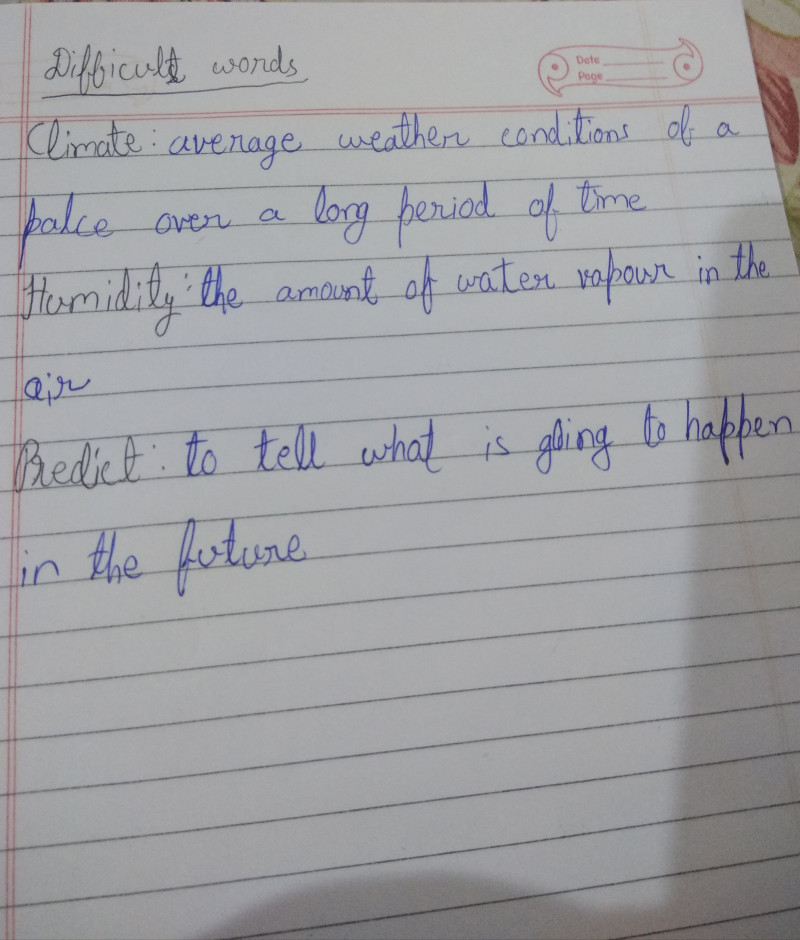 Difficult words
Date
Page
Climate: average weather conditions of a
palce over a long period of time
Humidity: the amount of water vapour in the
air
Predict: to tell what is going to happen
in the future